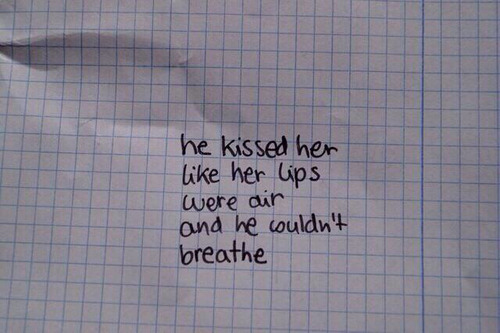 he kissed her
like her lips
were air
and he couldn't
breathe